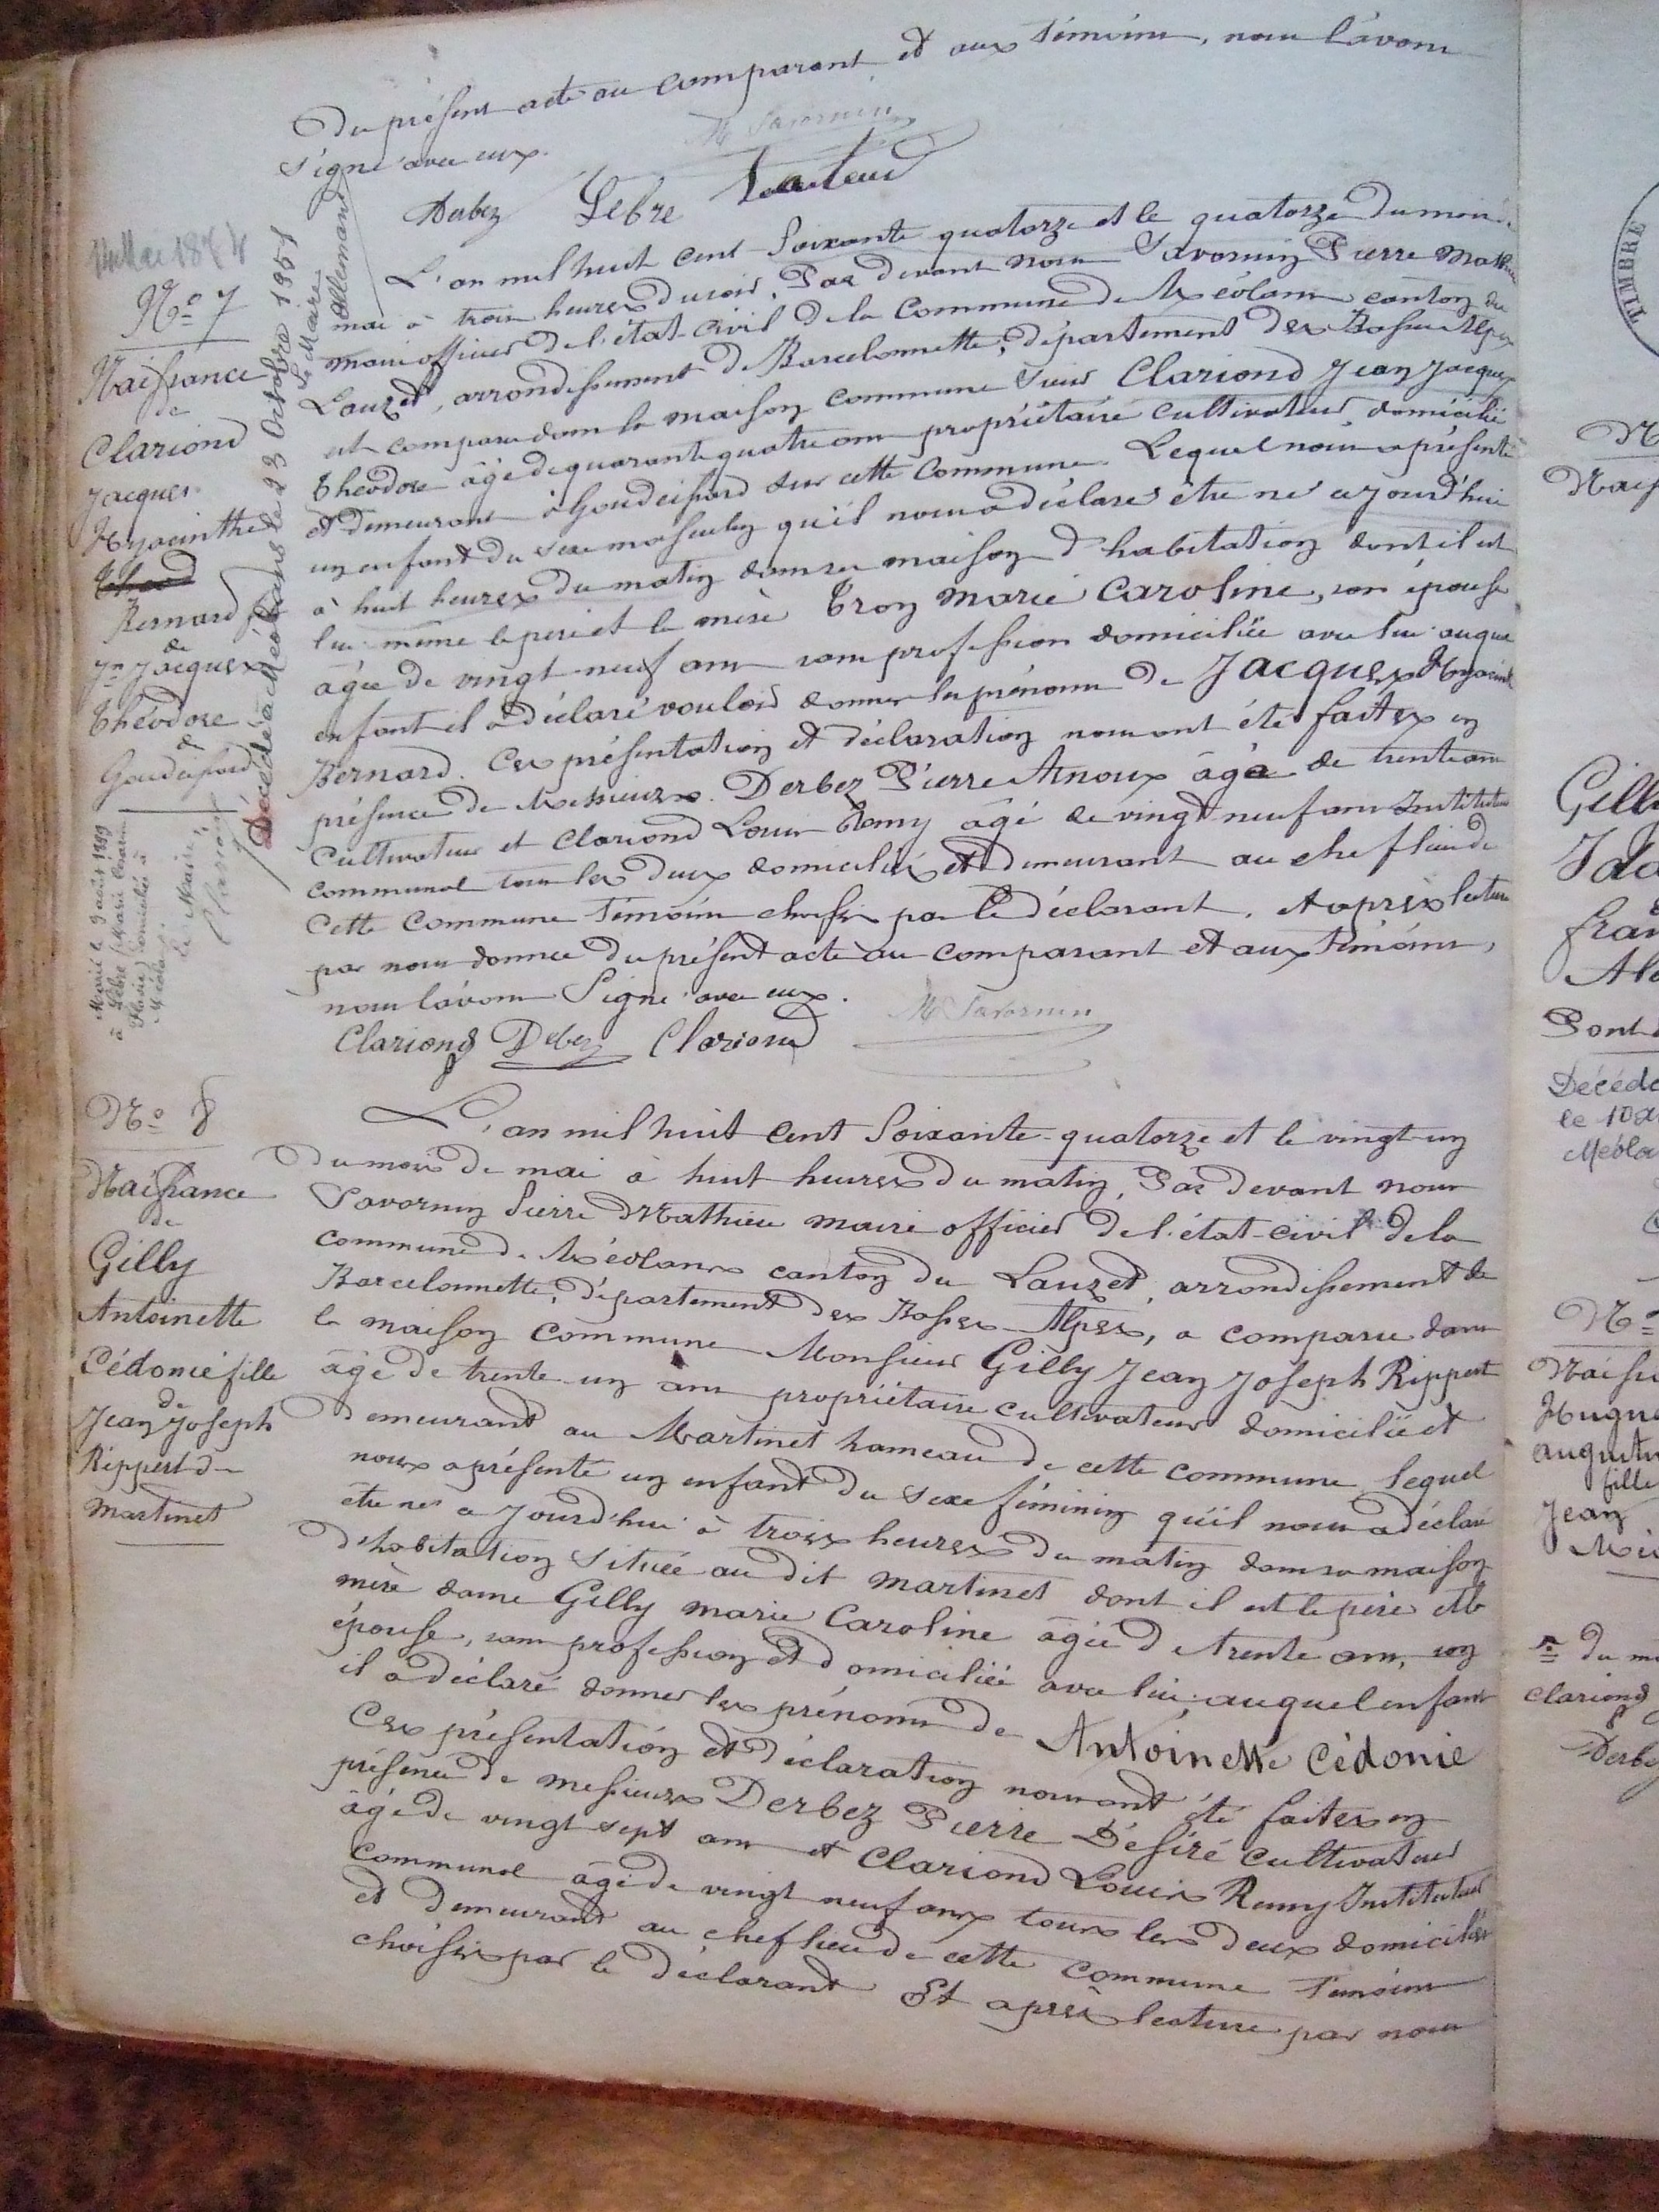 Du présent acte au comparant et aux témoins, nous l'avons
Signé avec eux.
M Savornin
Derbez Lebre
14 Mai 1874
N° 7
Naissance
de
Clariond
Jacques
Hyacinthe
Bernard
de
Jn Jacques
Théodore
de
Goudeissard
Décédé à Méolans le 23 Octobre 1951
Le Maire
Allemand
Marié le 9 août 1899
à Lebre Marie
domiciliés à
Méolans.
Le Maire,
L'an mil huit cent Soixante quatorze et le quatorze du mois de
mai à trois heures du soir, Par devant nous Savornin Pierre Mathieu
maire officier de l'état-civil de la Commune de Méolans canton du
Lauzet, arrondissement de Barcelonnette, département des Basses Alpes
est comparu dans la maison commune Sieur Clariond Jean Jacques
Théodore âgé de quarante quatre ans propriétaire cultivateur domicilié
et demeurant à Goudeissard sur cette Commune. Lequel nous a présenté
un enfant du sexe masculin qu'il nous a déclaré être né cejourd'hui
à huit heures du matin dans sa maison d'habitation dont il est
lui-même le père et la mère Tron Marie Caroline, son épouse
âgée de vingt-neuf ans sans profession domiciliée avec lui auquel
enfant il a déclaré vouloir donner les prénoms de Jacques Hyacinthe
Bernard. Ces présentation et déclaration nous ont été faites en
présence de Messieurs Derbez Pierre Arnoux âgé de trente ans
Cultivateur et Clariond Louis Remy âgé de vingt neuf ans Instituteur
communal tous les deux domiciliés et demeurant au chef lieu de
cette commune témoins choisis par le déclarant. Et après lecture
par nous donnée du présent acte au comparant et aux témoins,
nous l'avons Signé avec eux.
Clariond Derbez Clariond M Savornin
N° 8
Naissance
de
Gilly
Antoinette
Cédonie fille
de
Jean Joseph
Rippert du
Martinet
L'an mil huit cent Soixante-quatorze et le vingt-un
du mois de mai à huit heures du matin, Par devant nous
Savornin Pierre Mathieu maire officier de l'état-civil de la
commune de Méolans canton du Lauzet, arrondissement de
Barcelonnette, département des Basses Alpes, a comparu dans
la maison commune Monsieur Gilly Jean Joseph Rippert
âgé de trente-un ans propriétaire cultivateur domicilié et
demeurant au Martinet hameau de cette commune lequel
nous a présenté un enfant du sexe féminin qu'il nous a déclaré
être né a jourd'hui à trois heures du matin dans sa maison
d'habitation située au dit Martinet dont il est le père et la
mère dame Gilly marie Caroline âgée de trente ans, son
épouse, sans profession et domiciliée avec lui, auquel enfant
il a déclaré donner les prénoms de Antoinette Cédonie
Ces présentation et déclaration nous ont été faites en
présence de messieurs Derbez Pierre Désiré cultivateur
âgé de vingt sept ans et Clariond Louis Remy Instituteur
communal âgé de vingt neuf ans tous les deux domiciliés
et demeurant au chef lieu de cette commune témoins
choisis par le déclarant Et après lecture par nous
TIMBRE
Gilly
Décédé
le 10
Jean
du
Clariond
Derbez